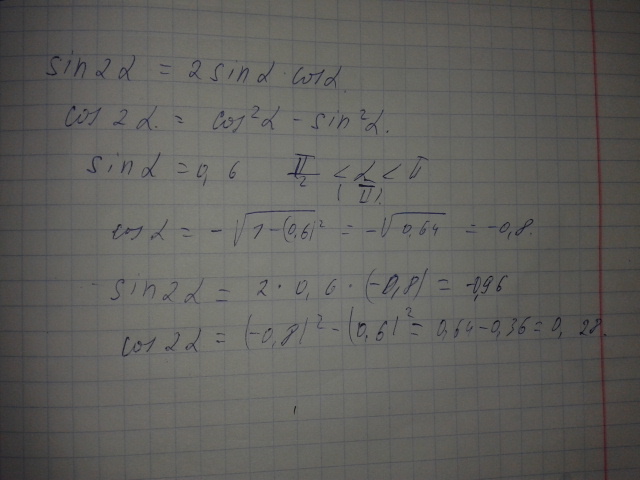 sin2α = 2sinα·cosα.
cos2α. = cos²α - sin²α.
sinα = 0,6 π/2 < α < π
(II).
cosα = -√(1-(0,6)²) = -√0,64 = -0,8.
sin2α = 2·0,6·(-0,8) = -0,96
cos2α = (-0,8)² - (0,6)² = 0,64-0,36 = 0,28.